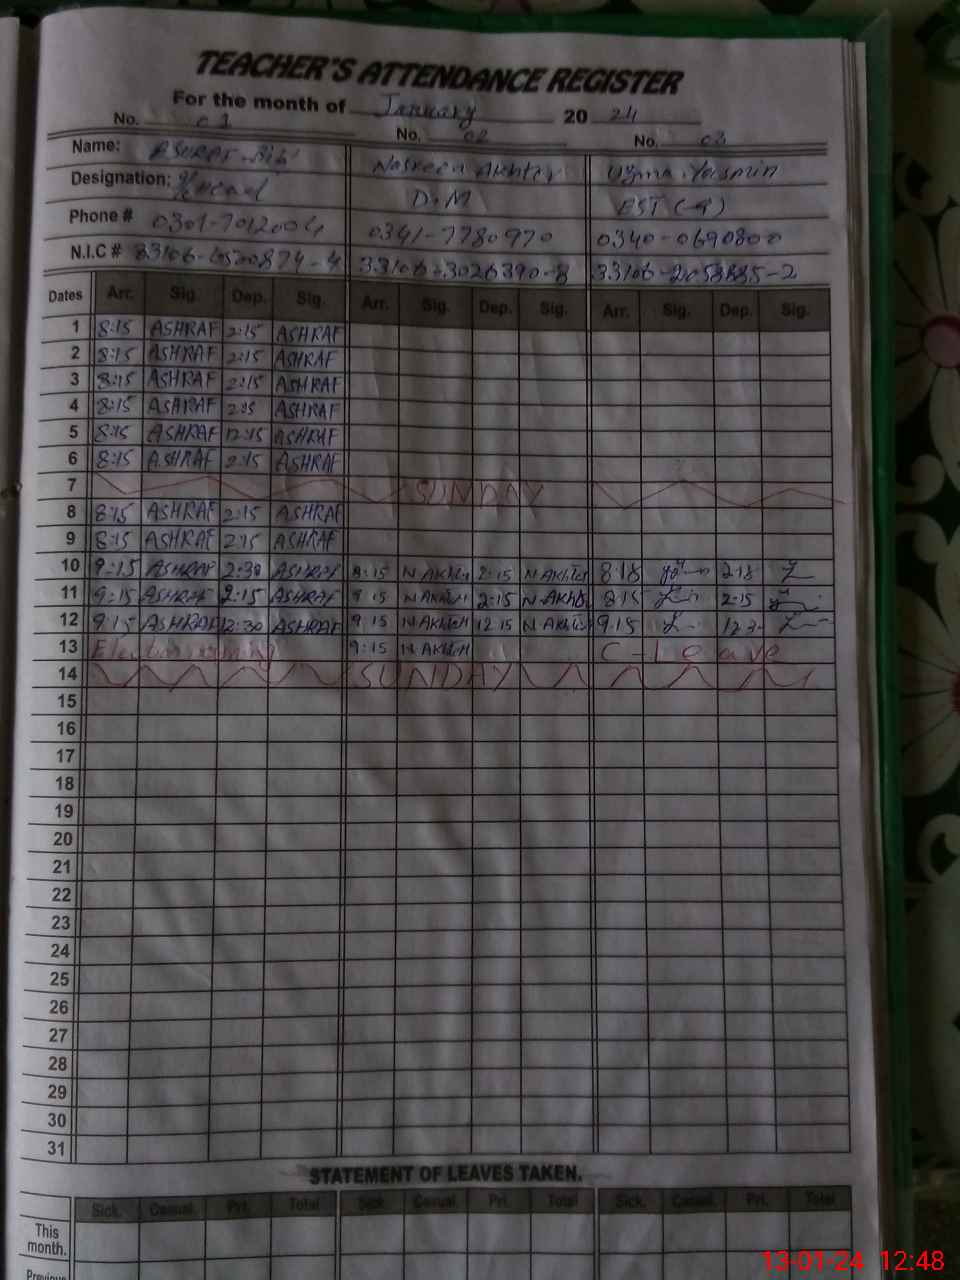 TEACHER'S ATTENDANCE REGISTER
For the month of January 20 24
No. 01 No. 02 No. 03
Name: Nasreen Akhter Uzma Yasmin
Designation: D.M EST (
Phone # 0301-7012004 0341-7780970 0340-0690800
N.I.C # 33106-3026390-8
Dates Arr. Sig. Dep. Sig. Arr. Sig. Dep. Sig. Arr. Sig. Dep. Sig.
1 8:15 ASHRAF 2:15 ASHRAF
2 8:15 ASHRAF 2:15 ASHRAF
3 8:15 ASHRAF 2:15 ASHRAF
4 8:15 ASHRAF ASHRAF
5 8:15 ASHRAF 12:15 ASHRAF
6 8:15 ASHRAF 2:15 ASHRAF
7 SUNDAY
8 8:15 ASHRAF 2:15 ASHRAF
9 8:15 ASHRAF 2:15 ASHRAF
10 9:15 ASHRAF 2:30 ASHRAF 8:15 N AKhter 2:15 N AKhter 8:18 2:18
11 9:15 ASHRAF 2:15 ASHRAF 9 15 N AKhter 2:15 N-AKhter 8:15 2:15
12 9:15 ASHRAF 12:30 ASHRAF 9.15 N AKhter 12:15 N AKhter 9.15
13 Election 9:15 N AKhter C-Leave
14 SUNDAY
15
16
17
18
19
20
21
22
23
24
25
26
27
28
29
30
31
STATEMENT OF LEAVES TAKEN.
Sick. Casual. Pri. Total Sick Casual. Pri. Total Sick. Casual. Pri. Total
This
month.
Previous
13-01-24 12:48